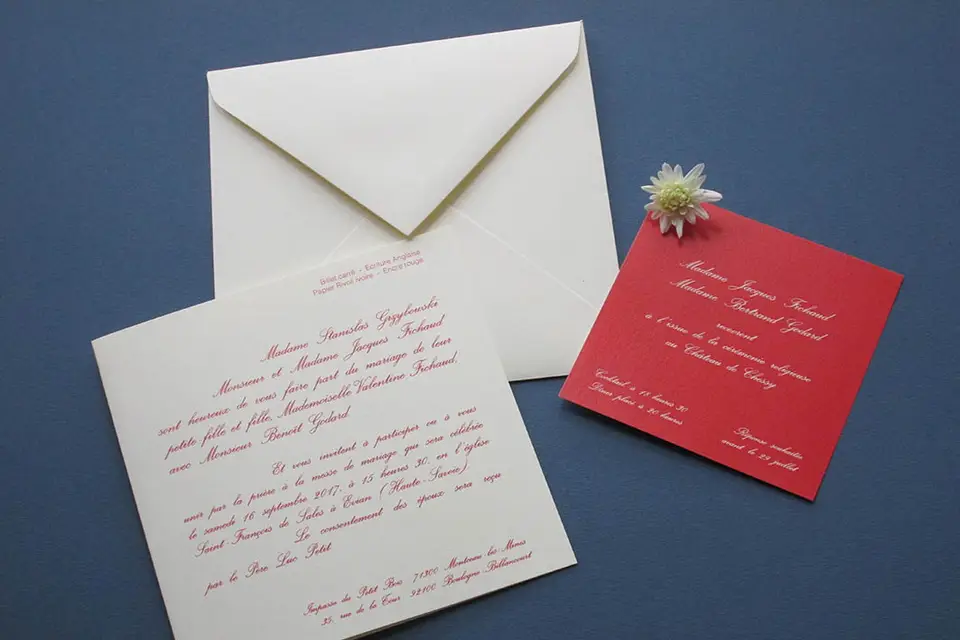 Billet carré - Ecriture Anglaise
Papier Rivoli ivoire - Encre rouge
Madame Stanislas Grzybowski
Monsieur et Madame Jacques Fichaud
sont heureux de vous faire part du mariage de leur
petite fille et fille, Mademoiselle Valentine Fichaud,
avec Monsieur Benoît Godard
Et vous invitent à participer ou à vous
unir par la prière à la messe de mariage qui sera célébrée
le samedi 16 septembre 2017, à 15 heures 30, en l'église
Saint-François de Sales à Evian (Haute-Savoie)
Le consentement des époux sera reçu
par le Père Luc Petit
Impasse du Petit Bois 71300 Montceau-les-Mines
35, rue de la Tour 92100 Boulogne-Billancourt
Madame Jacques Fichaud
Madame Bertrand Godard
recevront
à l'issue de la cérémonie religieuse
au Château de Chessy
Cocktail à 18 heures 30
Dîner placé à 20 heures
Réponse souhaitée
avant le 29 juillet